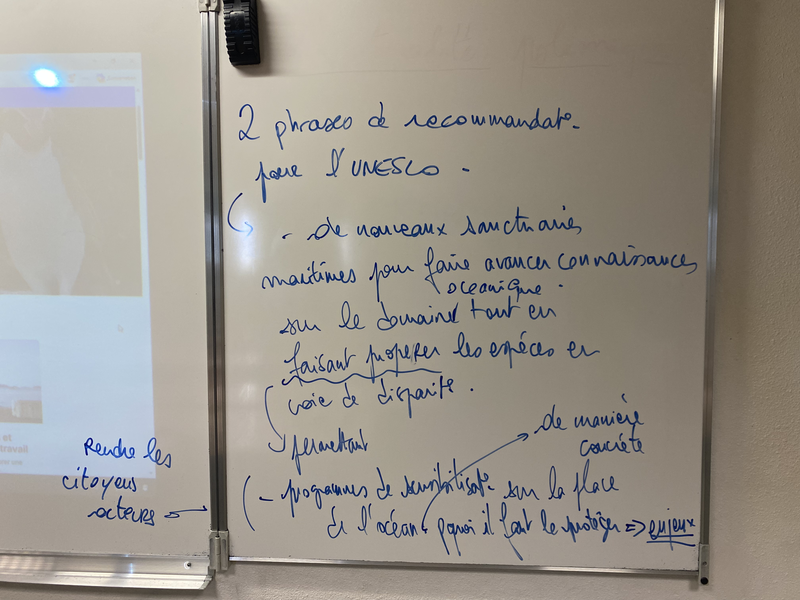 2 phrases de recommandat°
pour l'UNESCO -
- de nouveaux sanctuaires
maritimes pour faire avancer connaissances
océanique.
sur le domaine tout en
faisant propérer les espèces en
voie de disparit°.
permettant
de manière
concrète
- programmes de sensibilisat° sur la place
de l'océan + pquoi il faut le protéger => enjeux
Rendre les
citoyens
acteurs
et
travail